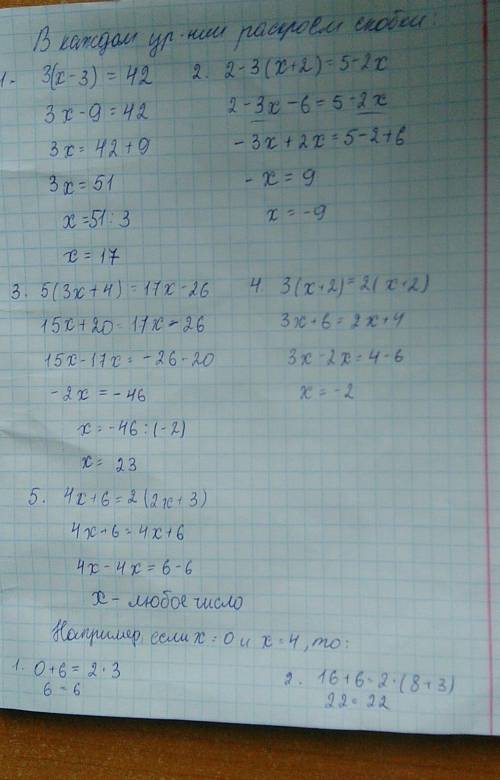 В каждом ур-нии раскроем скобки:
1. 3(x-3) = 42
3x-9=42
3x=42+9
3x=51
x=51:3
x=17
2. 2-3(x+2)=5-2x
2-3x-6=5-2x
-3x+2x=5-2+6
-x=9
x=-9
3. 5(3x+4)=17x-26
15x+20=17x-26
15x-17x=-26-20
-2x=-46
x=-46:(-2)
x=23
4. 3(x+2)=2(x+2)
3x+6=2x+4
3x-2x=4-6
x=-2
5. 4x+6=2(2x+3)
4x+6=4x+6
4x-4x=6-6
x-любое число
Например, если x=0 и x=4, то:
1. 0+6=2·3
6=6
2. 16+6=2·(8+3)
22=22